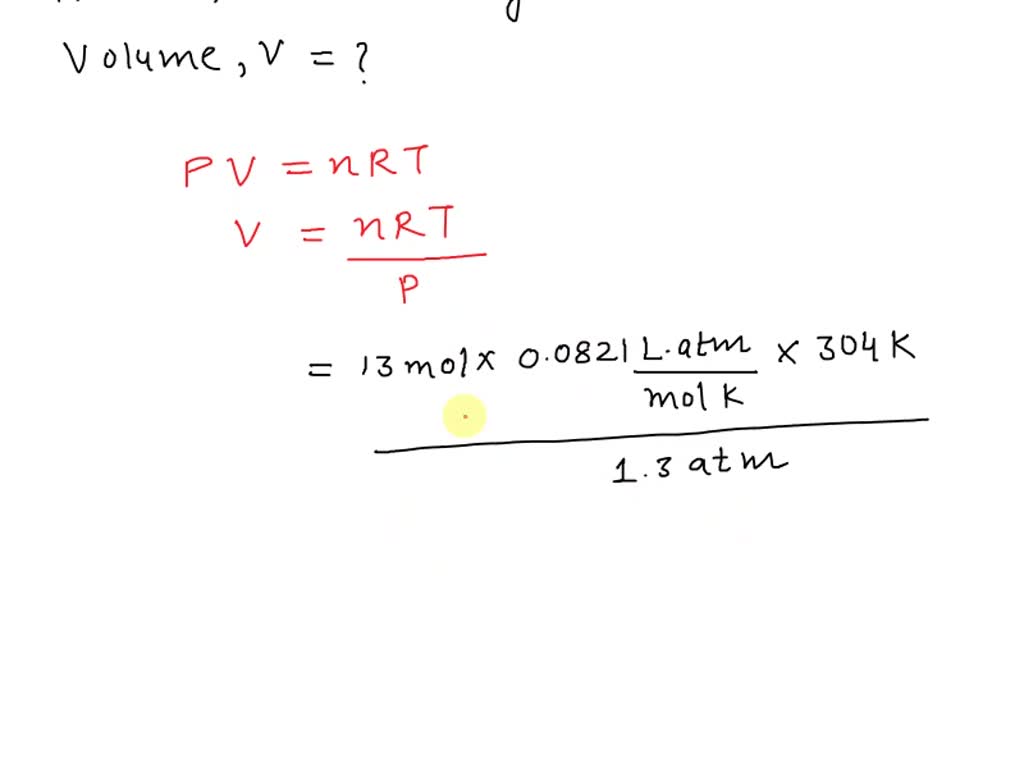 Volume, V = ?
PV = nRT
V = nRT
P
= 13 mol x 0.0821 L.atm x 304 K
mol K
1.3 atm